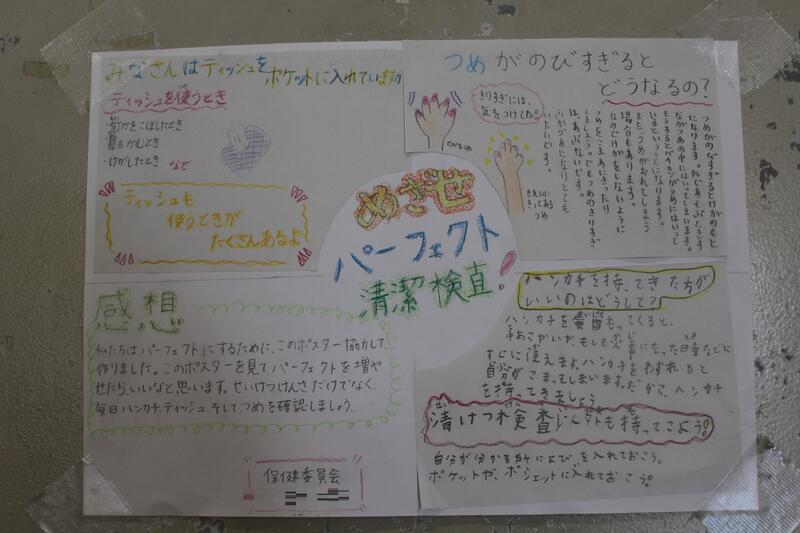 みなさんはティッシュを
ポケットに入れていますか
ティッシュを使うとき
・何かをこぼしたとき
・鼻をかむとき
・けがしたとき など
ティッシュも
使うときが
たくさんあるよ
つめがのびすぎると
どうなるの?
きりすぎには、
気をつけてね。
つめがのびすぎるとけがのもと
になります。外であそぶとすな
がつめの中にはいってしまいます。
もうするとバイキンがつめにはいって
いるということになります。
また、つめがおれてしまう
場合もあります。
なのでけがをしないように
つめをこまめにきったり
しましょう。でもつめのきりすぎ
はあぶないです。
ふかづめになりとても
いたいです。
のびたつめ
めざせ
パーフェクト
清潔検査!
感想
私たちは、パーフェクトにするために、このポスター協力して、
作りました。このポスターを見て、パーフェクトを増や
せたら、いいなと思います。せいけつけんさだけでなく、
毎日ハンカチ、ティッシュ そしてつめを確認しましょう。
保健委員会
ハンカチを持ってきた方が
いいのはどうして?
ハンカチを毎日もってくると、
手あらいや、もし火事になった時などに
すぐに使えます。ハンカチをわすれると
自分がこまってしまいます。だから、ハンカチ
を持ってきましょう
清けつ検査いがいも持ってこよう!
自分が分かる所によびを入れておこう。
ポケットや、ポシェットに入れておこう。